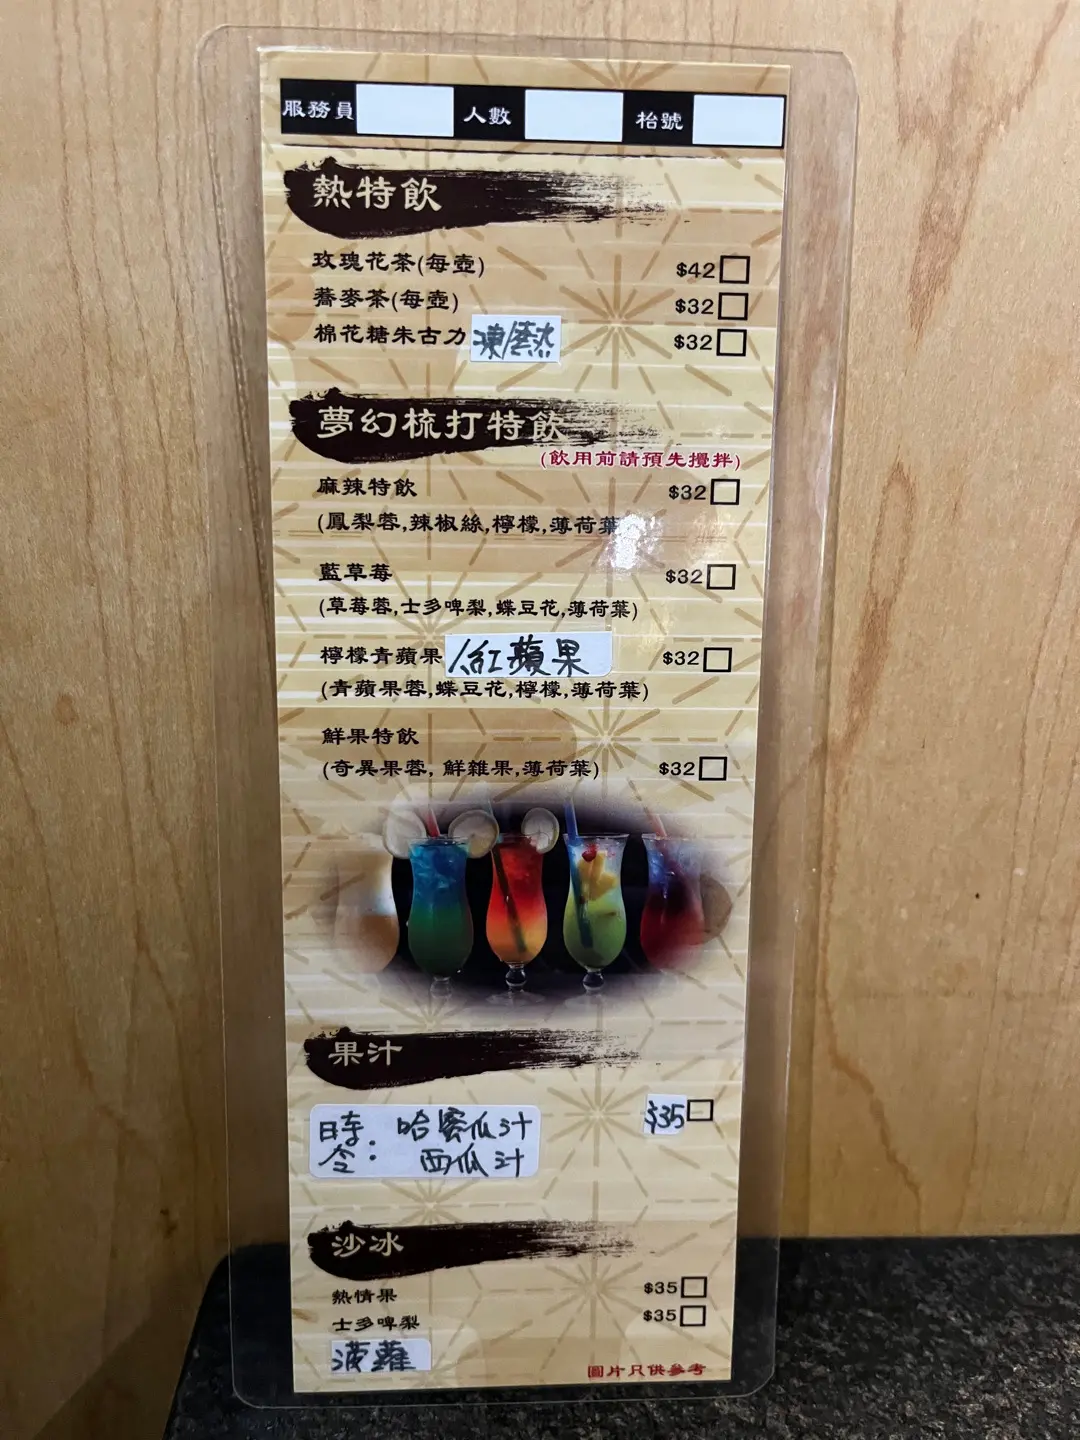 服務員 人數 枱號
熱特飲
玫瑰花茶(每壺) $42
蕎麥茶(每壺) $32
棉花糖朱古力 凍/熱 $32
夢幻梳打特飲
(飲用前請預先攪拌)
麻辣特飲 $32
(鳳梨蓉,辣椒絲,檸檬,薄荷葉
藍草莓 $32
(草莓蓉,士多啤梨,蝶豆花,薄荷葉)
檸檬青蘋果/紅蘋果 $32
(青蘋果蓉,蝶豆花,檸檬,薄荷葉)
鮮果特飲
(奇異果蓉, 鮮雜果,薄荷葉) $32
果汁
時令: 哈蜜瓜汁 $35
西瓜汁
沙冰
熱情果 $35
士多啤梨 $35
菠蘿
圖片只供參考